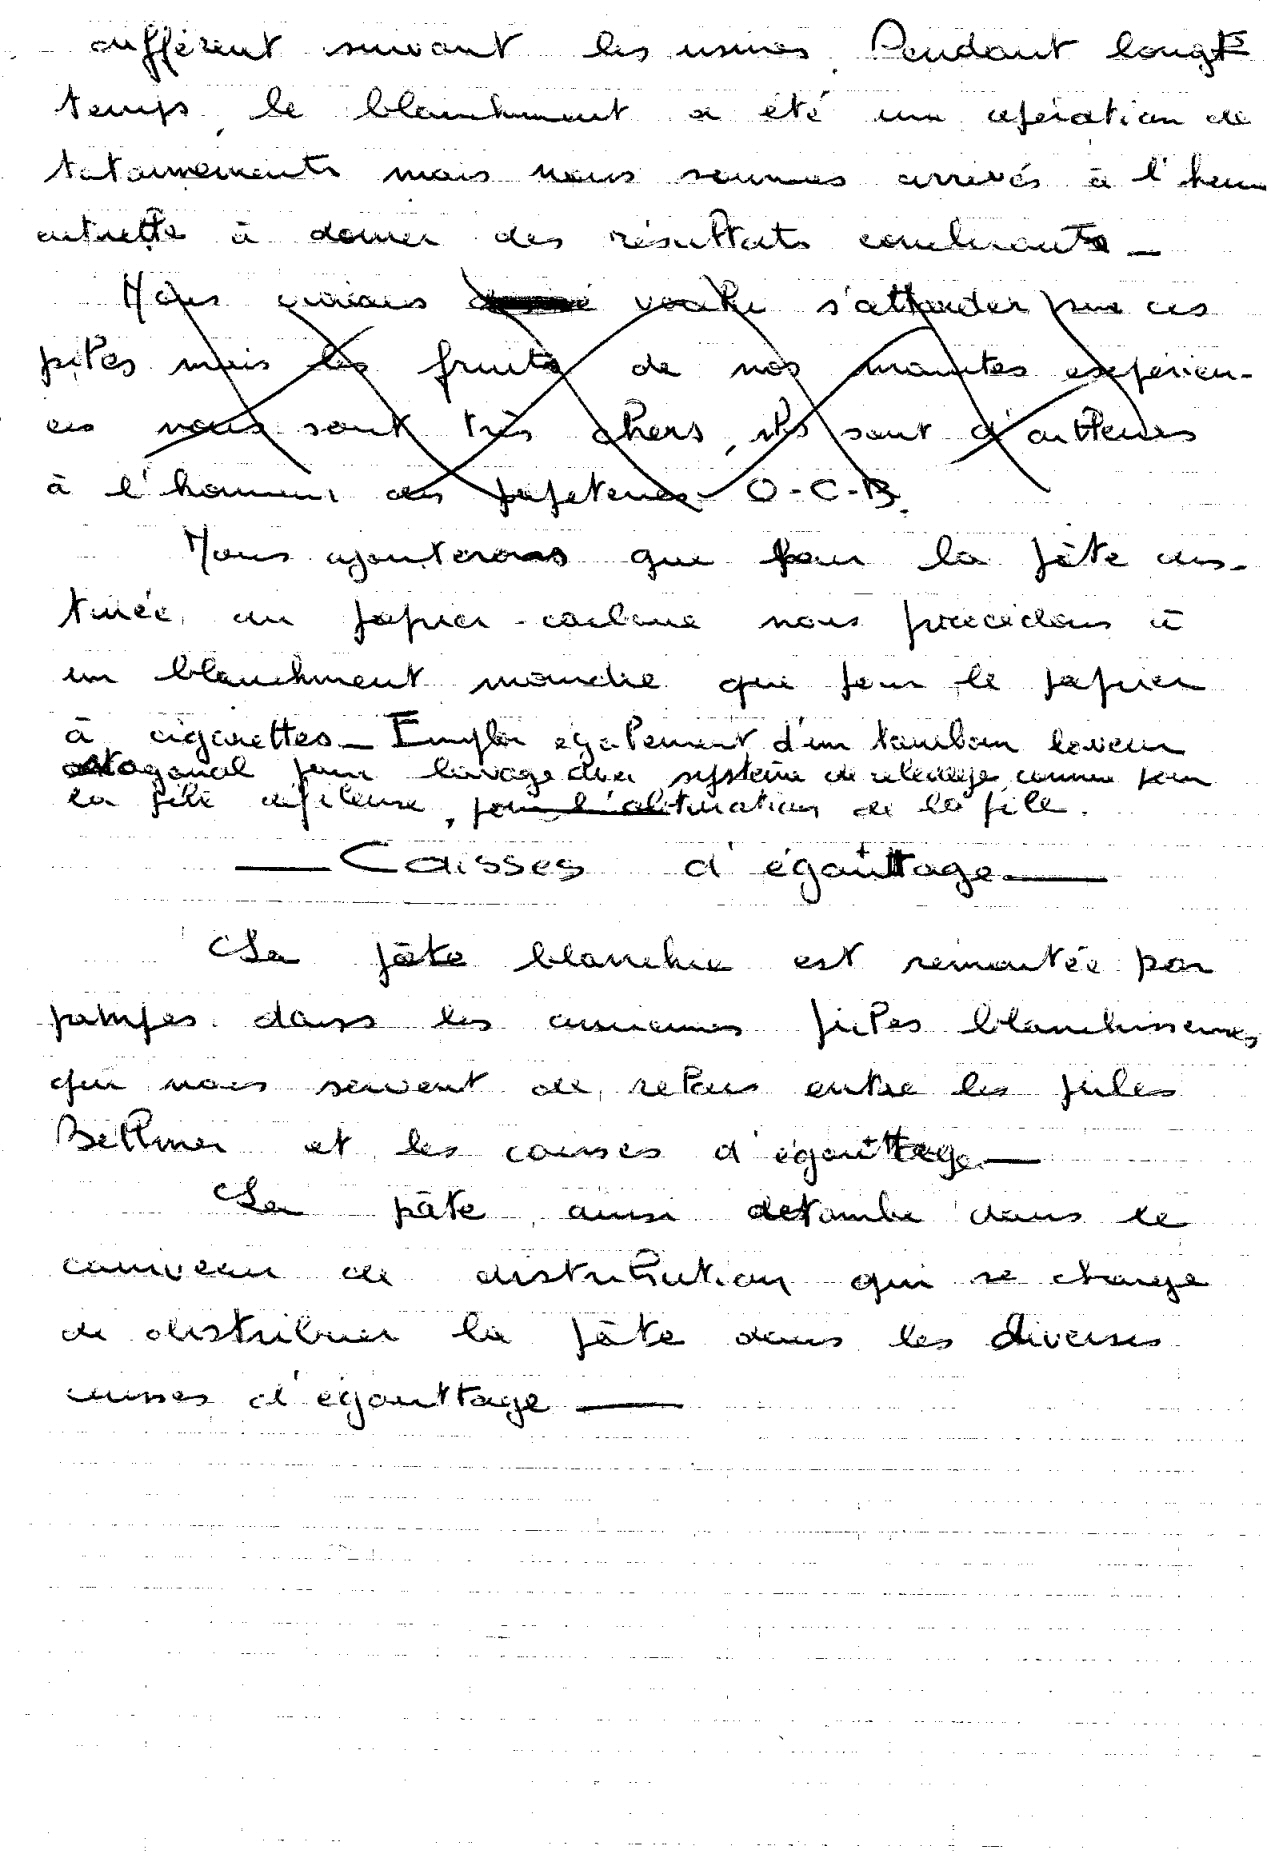 différent suivant les usines. Pendant longts
temps, le blanchment a été une opération de
tatonnements mais nous sommes arrivés à l'heure
actuelle à donner des résultats concluants —
Nous voulu s'attarder sur ces
piles mais les fruits de nos maintes expérien-
ces nous sont très chers, ils sont d'ailleurs
à l'honneur des papeteries O-C-B.
Nous ajouterons que pour la pâte des-
tinée au papier-carbone nous procédons à
un blanchment moindre que pour le papier
à cigarettes — Emploi également d'un tambour laveur
octogonal pour lavage avec système de relevage comme pour
la pile défileuse, pour l'obturation de la pile.
— Caisses d'égoûttage —
La pâte blanchie est remontée par
pompes dans les anciennes piles blanchisseuses
qui nous servent de relais entre les piles
Bellmer et les caisses d'égoûttage —
La pâte ainsi détombe dans le
caniveau de distribution qui se charge
de distribuer la pâte dans les diverses
caisses d'égouttage —